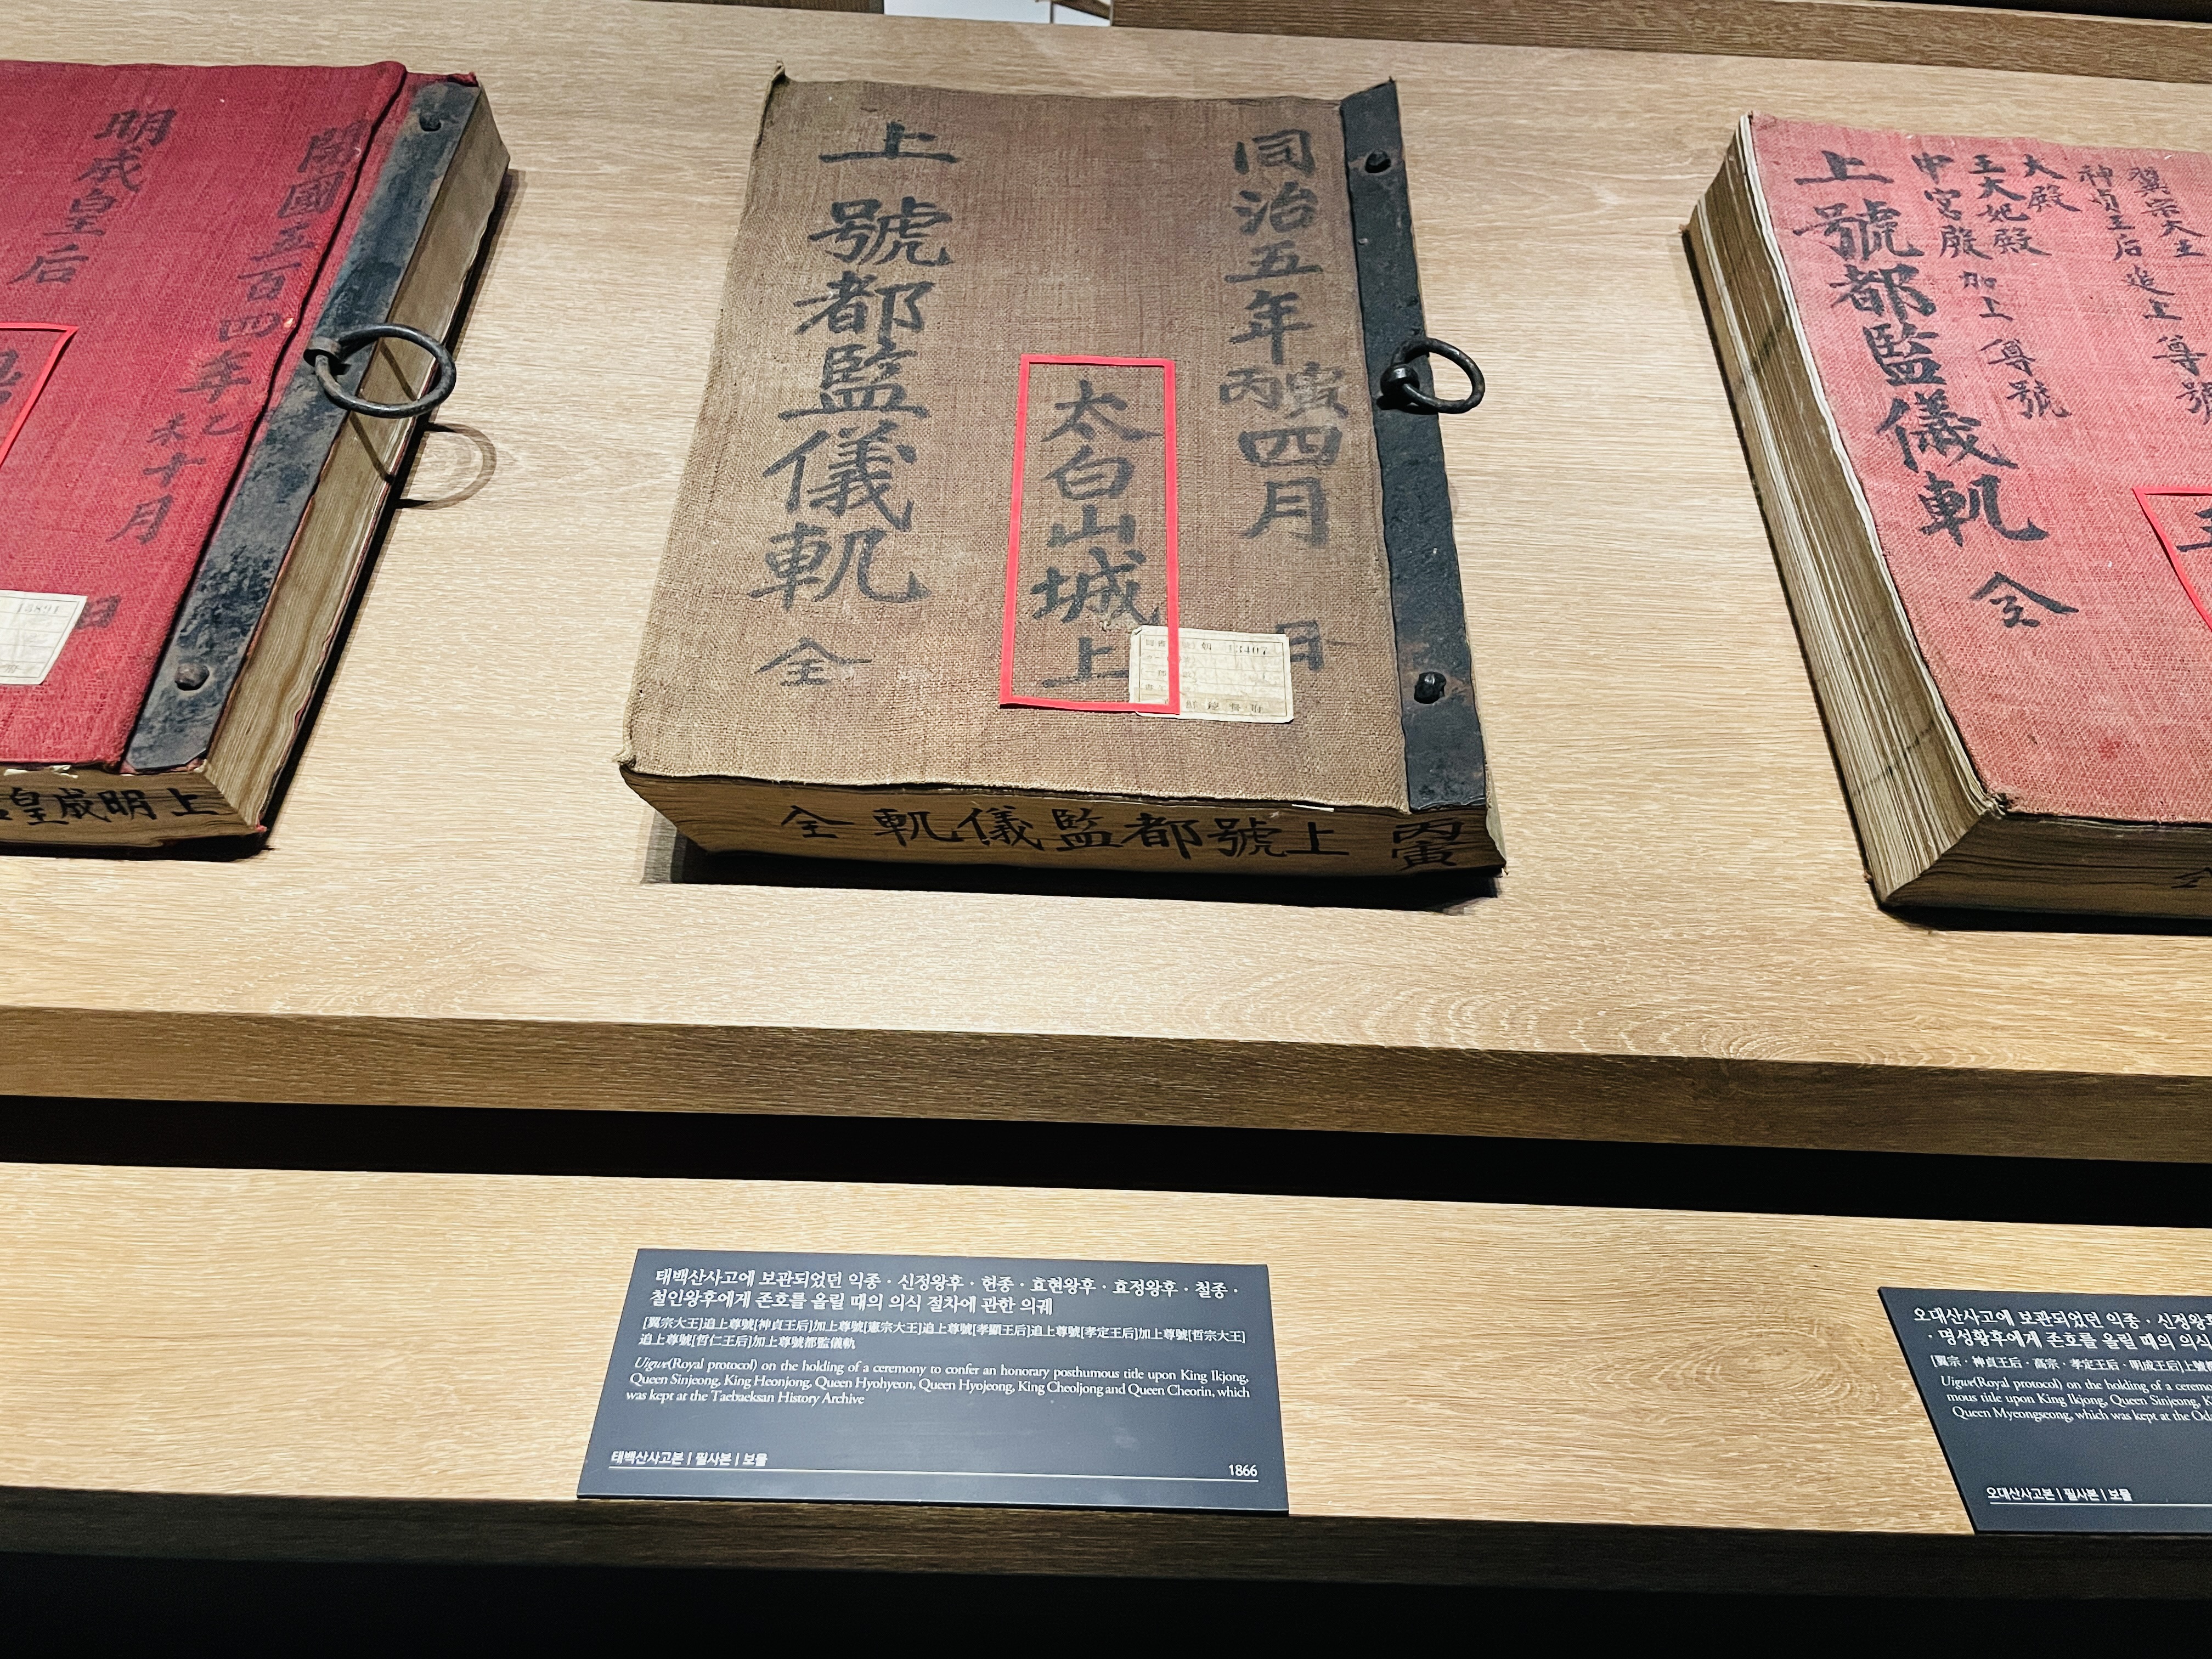 開國五百四年乙未十月
日
明成皇后
上明成皇
同治五年丙寅四月
日
太白山城上
上號都監儀軌 全
13407
丙寅
上號都監儀軌 全
翼宗大王
神貞王后 追上尊號
大殿
王大妃殿
中宮殿 加上尊號
上號都監儀軌 全
태백산사고에 보관되었던 익종 · 신정왕후 · 헌종 · 효현왕후 · 효정왕후 · 철종 ·
철인왕후에게 존호를 올릴 때의 의식 절차에 관한 의궤
[翼宗大王]追上尊號[神貞王后]加上尊號[憲宗大王]追上尊號[孝顯王后]追上尊號[孝定王后]加上尊號[哲宗大王]
追上尊號[哲仁王后]加上尊號都監儀軌
Uigwe(Royal protocol) on the holding of a ceremony to confer an honorary posthumous title upon King Ikjong,
Queen Sinjeong, King Heonjong, Queen Hyohyeon, Queen Hyojeong, King Cheoljong and Queen Cheorin, which
was kept at the Taebaeksan History Archive
태백산사고본 | 필사본 | 보물
1866
오대산사고에 보관되었던 익종 · 신정왕후
· 명성황후에게 존호를 올릴 때의 의식
[翼宗 · 神貞王后 · 高宗 · 孝定王后 · 明成王后]上號
Uigwe(Royal protocol) on the holding of a
mous title upon King Ikjong, Queen Sinjeong,
Queen Myeongseong, which was kept at the
오대산사고본 | 필사본 | 보물